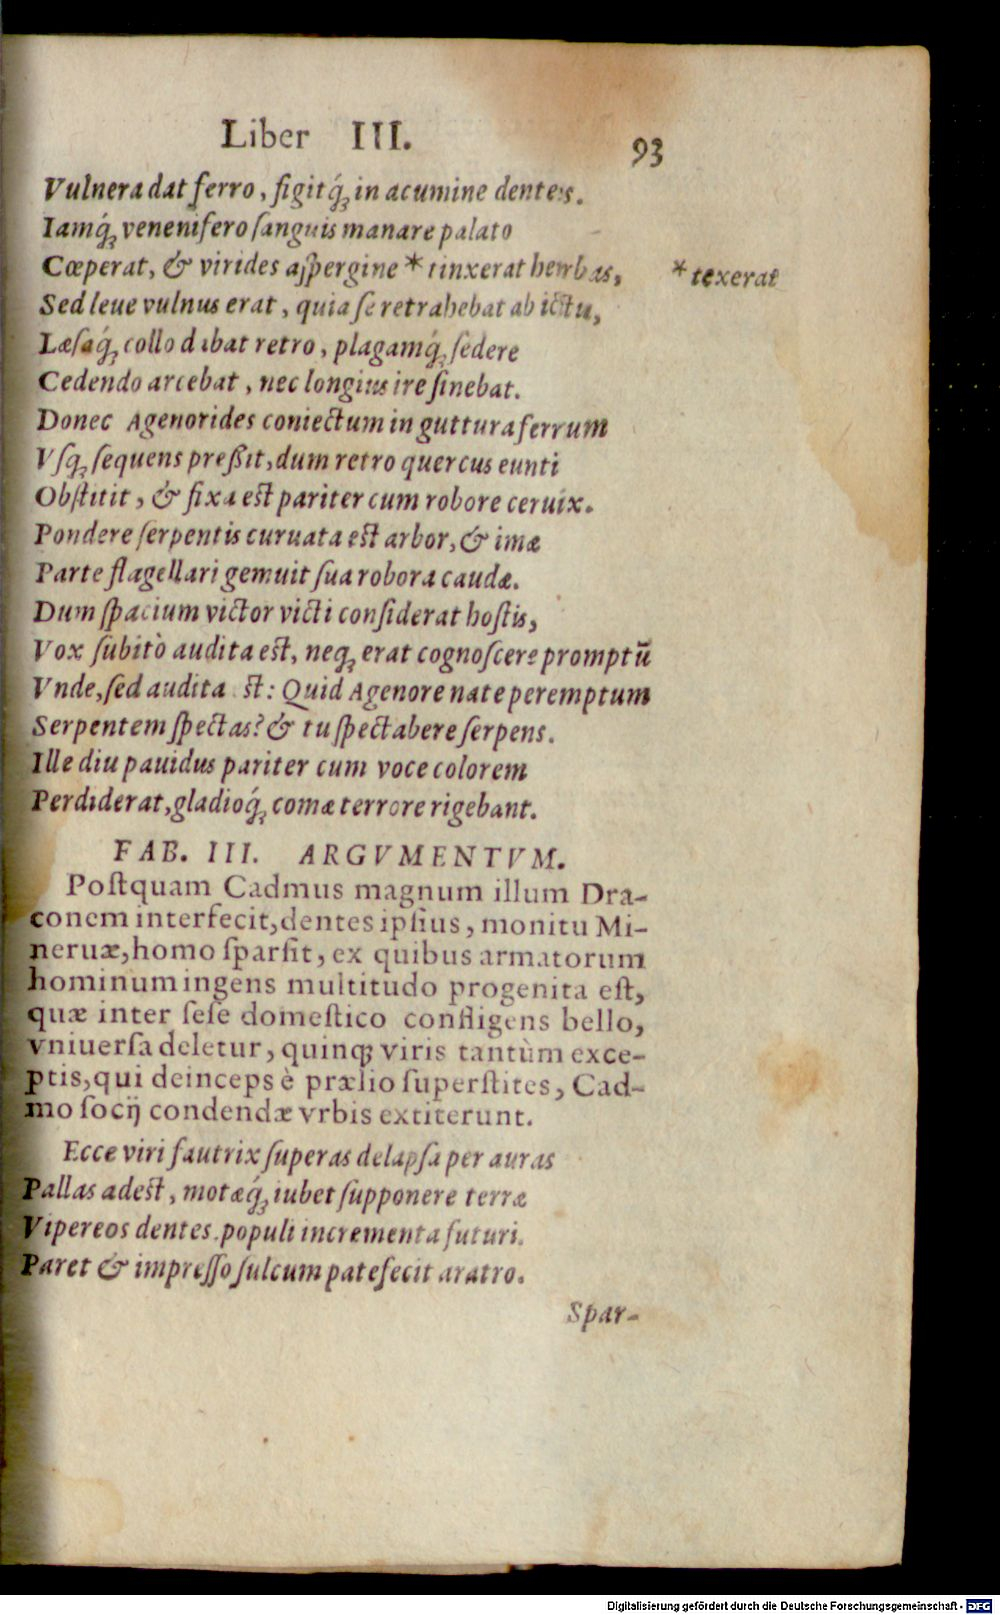 Liber III. 93
Vulnera dat ferro, figitq́; in acumine dentes.
Iamq́; venenifero ſanguis manare palato
Cœperat, & virides aſpergine * tinxerat herbas, * texerat
Sed leue vulnus erat, quia ſe retrahebat ab ictu,
Læſaq́; collo dabat retro, plagamq́; ſedere
Cedendo arcebat, nec longius ire ſinebat.
Donec Agenorides coniectum in guttura ferrum
Vſq; ſequens preßit, dum retro quercus eunti
Obſtitit, & fixa eſt pariter cum robore ceruix.
Pondere ſerpentis curuata eſt arbor, & imæ
Parte flagellari gemuit ſua robora caudæ.
Dum ſpacium victor victi conſiderat hoſtis,
Vox ſubitò audita eſt, neq; erat cognoſcere promptū
Vnde, ſed audita ſt: Quid Agenore nate peremptum
Serpentem ſpectas? & tu ſpectabere ſerpens.
Ille diu pauidus pariter cum voce colorem
Perdiderat, gladioq́; comæ terrore rigebant.
FAB. III. ARGVMENTVM.
Poſtquam Cadmus magnum illum Dra-
conem interfecit, dentes ipſius, monitu Mi-
neruæ, homo ſparſit, ex quibus armatorum
hominum ingens multitudo progenita eſt,
quæ inter ſeſe domeſtico confligens bello,
vniuerſa deletur, quinq; viris tantùm exce-
ptis, qui deinceps è prælio ſuperſtites, Cad-
mo ſocij condendæ vrbis extiterunt.
Ecce viri fautrix ſuperas delapſa per auras
Pallas adeſt, motæq́; iubet ſupponere terræ
Vipereos dentes. populi incrementa futuri.
Paret & impreſſo ſulcum patefecit aratro.
Spar-
Digitalisierung gefördert durch die Deutsche Forschungsgemeinschaft - DFG